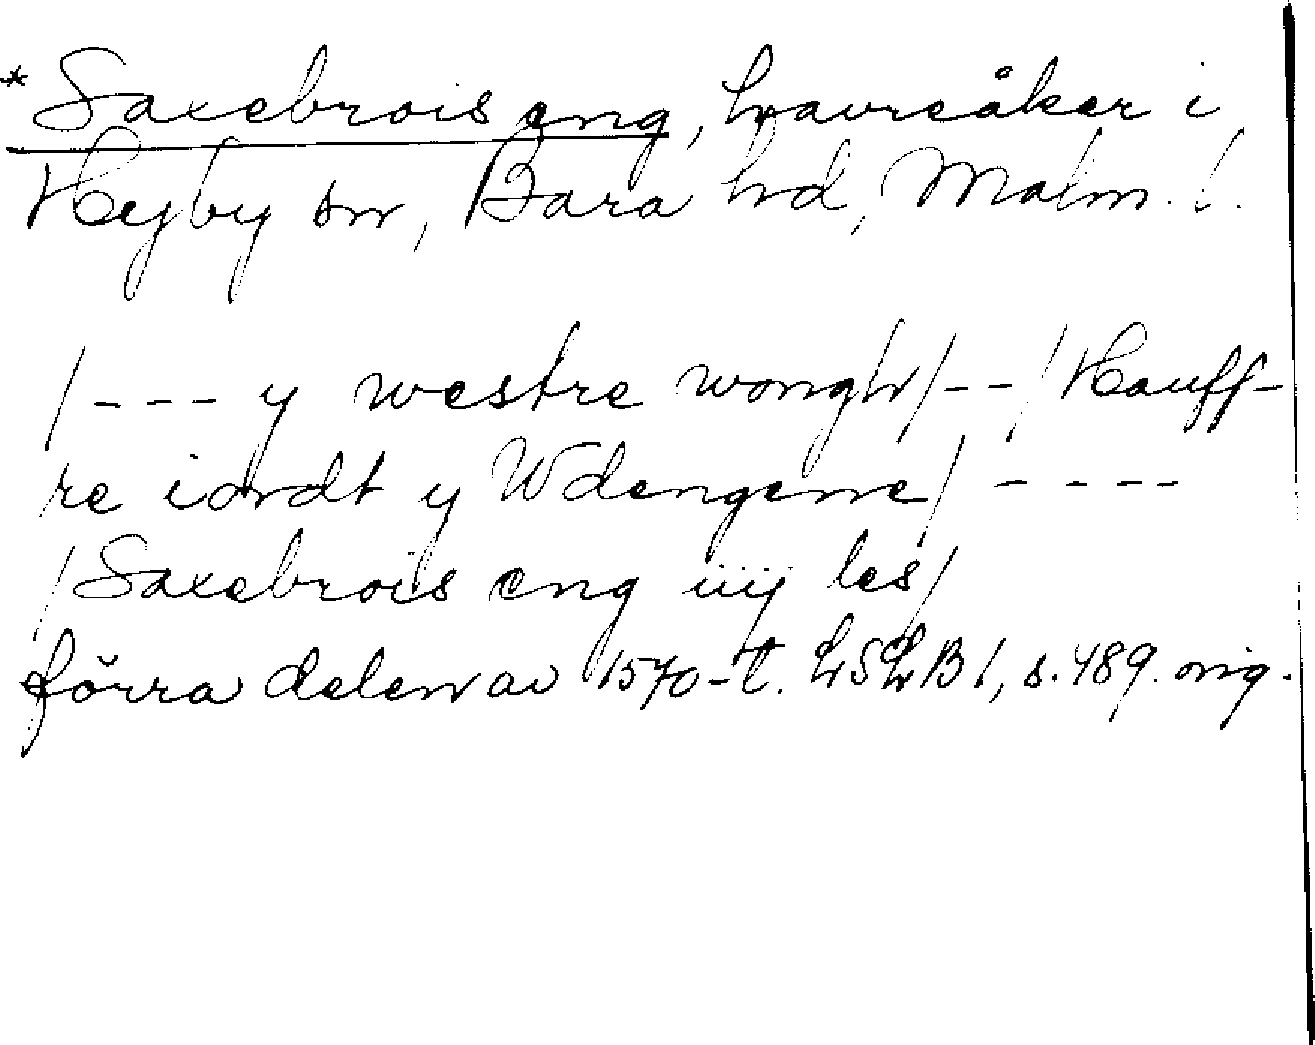 *Saxebrois eng, havreåker i
Hyby sn, Bara hd, Malm. l.
/--- y westre wongh/--/Hauff-
re iordt y Wdengenne/, ----
/Saxebrois eng iiij les/
förra delen av 1570-t. LSLB I, s. 489. orig.